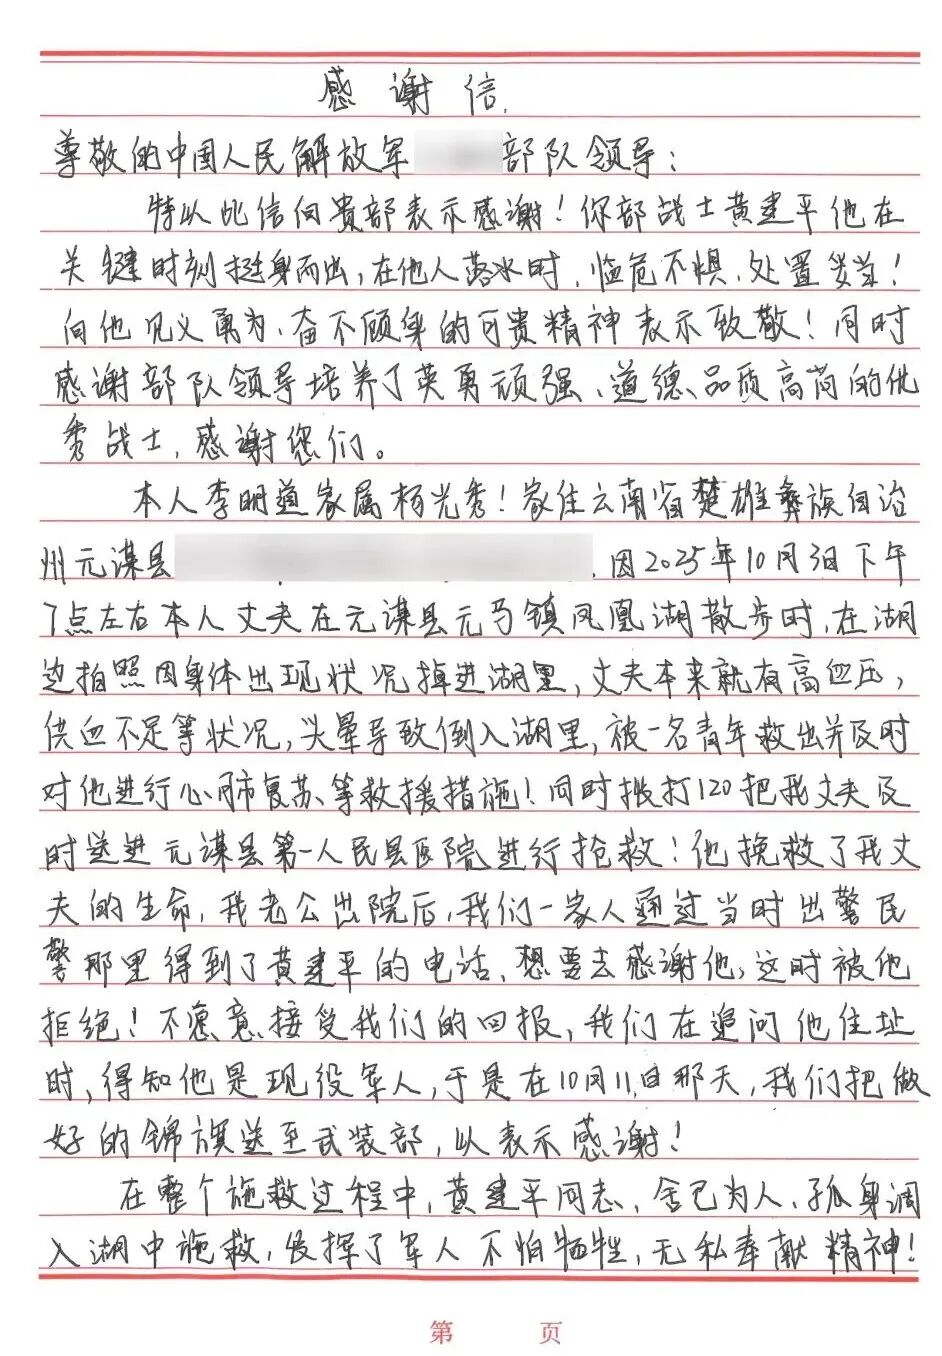 感谢信.
尊敬的中国人民解放军 部队领导：
特以此信向贵部表示感谢！你部战士黄建平他在
关键时刻挺身而出，在他人落水时，临危不惧、处置妥当！
向他见义勇为、奋不顾身的可贵精神表示致敬！同时
感谢部队领导培养了英勇顽强、道德品质高尚的优
秀战士，感谢您们。
本人李明道家属杨光秀！家住云南省楚雄彝族自治
州元谋县 .因2025年10月3日下午
7点左右本人丈夫在元谋县元马镇凤凰湖散步时，在湖
边拍照因身体出现状况掉进湖里，丈夫本来就有高血压，
供血不足等状况，头晕导致倒入湖里，被一名青年救出并及时
对他进行心肺复苏等救援措施！同时拨打120把我丈夫及
时送进元谋县第一人民县医院进行抢救！他挽救了我丈
夫的生命，我老公出院后，我们一家人通过当时出警民
警那里得到了黄建平的电话、想要去感谢他，这时被他
拒绝！不愿意接受我们的回报，我们在追问他住址
时，得知他是现役军人，于是在10月11日那天，我们把做
好的锦旗送至武装部，以表示感谢！
在整个施救过程中，黄建平同志，舍己为人、孤身调
入湖中施救，发挥了军人不怕牺牲，无私奉献精神！
第 页